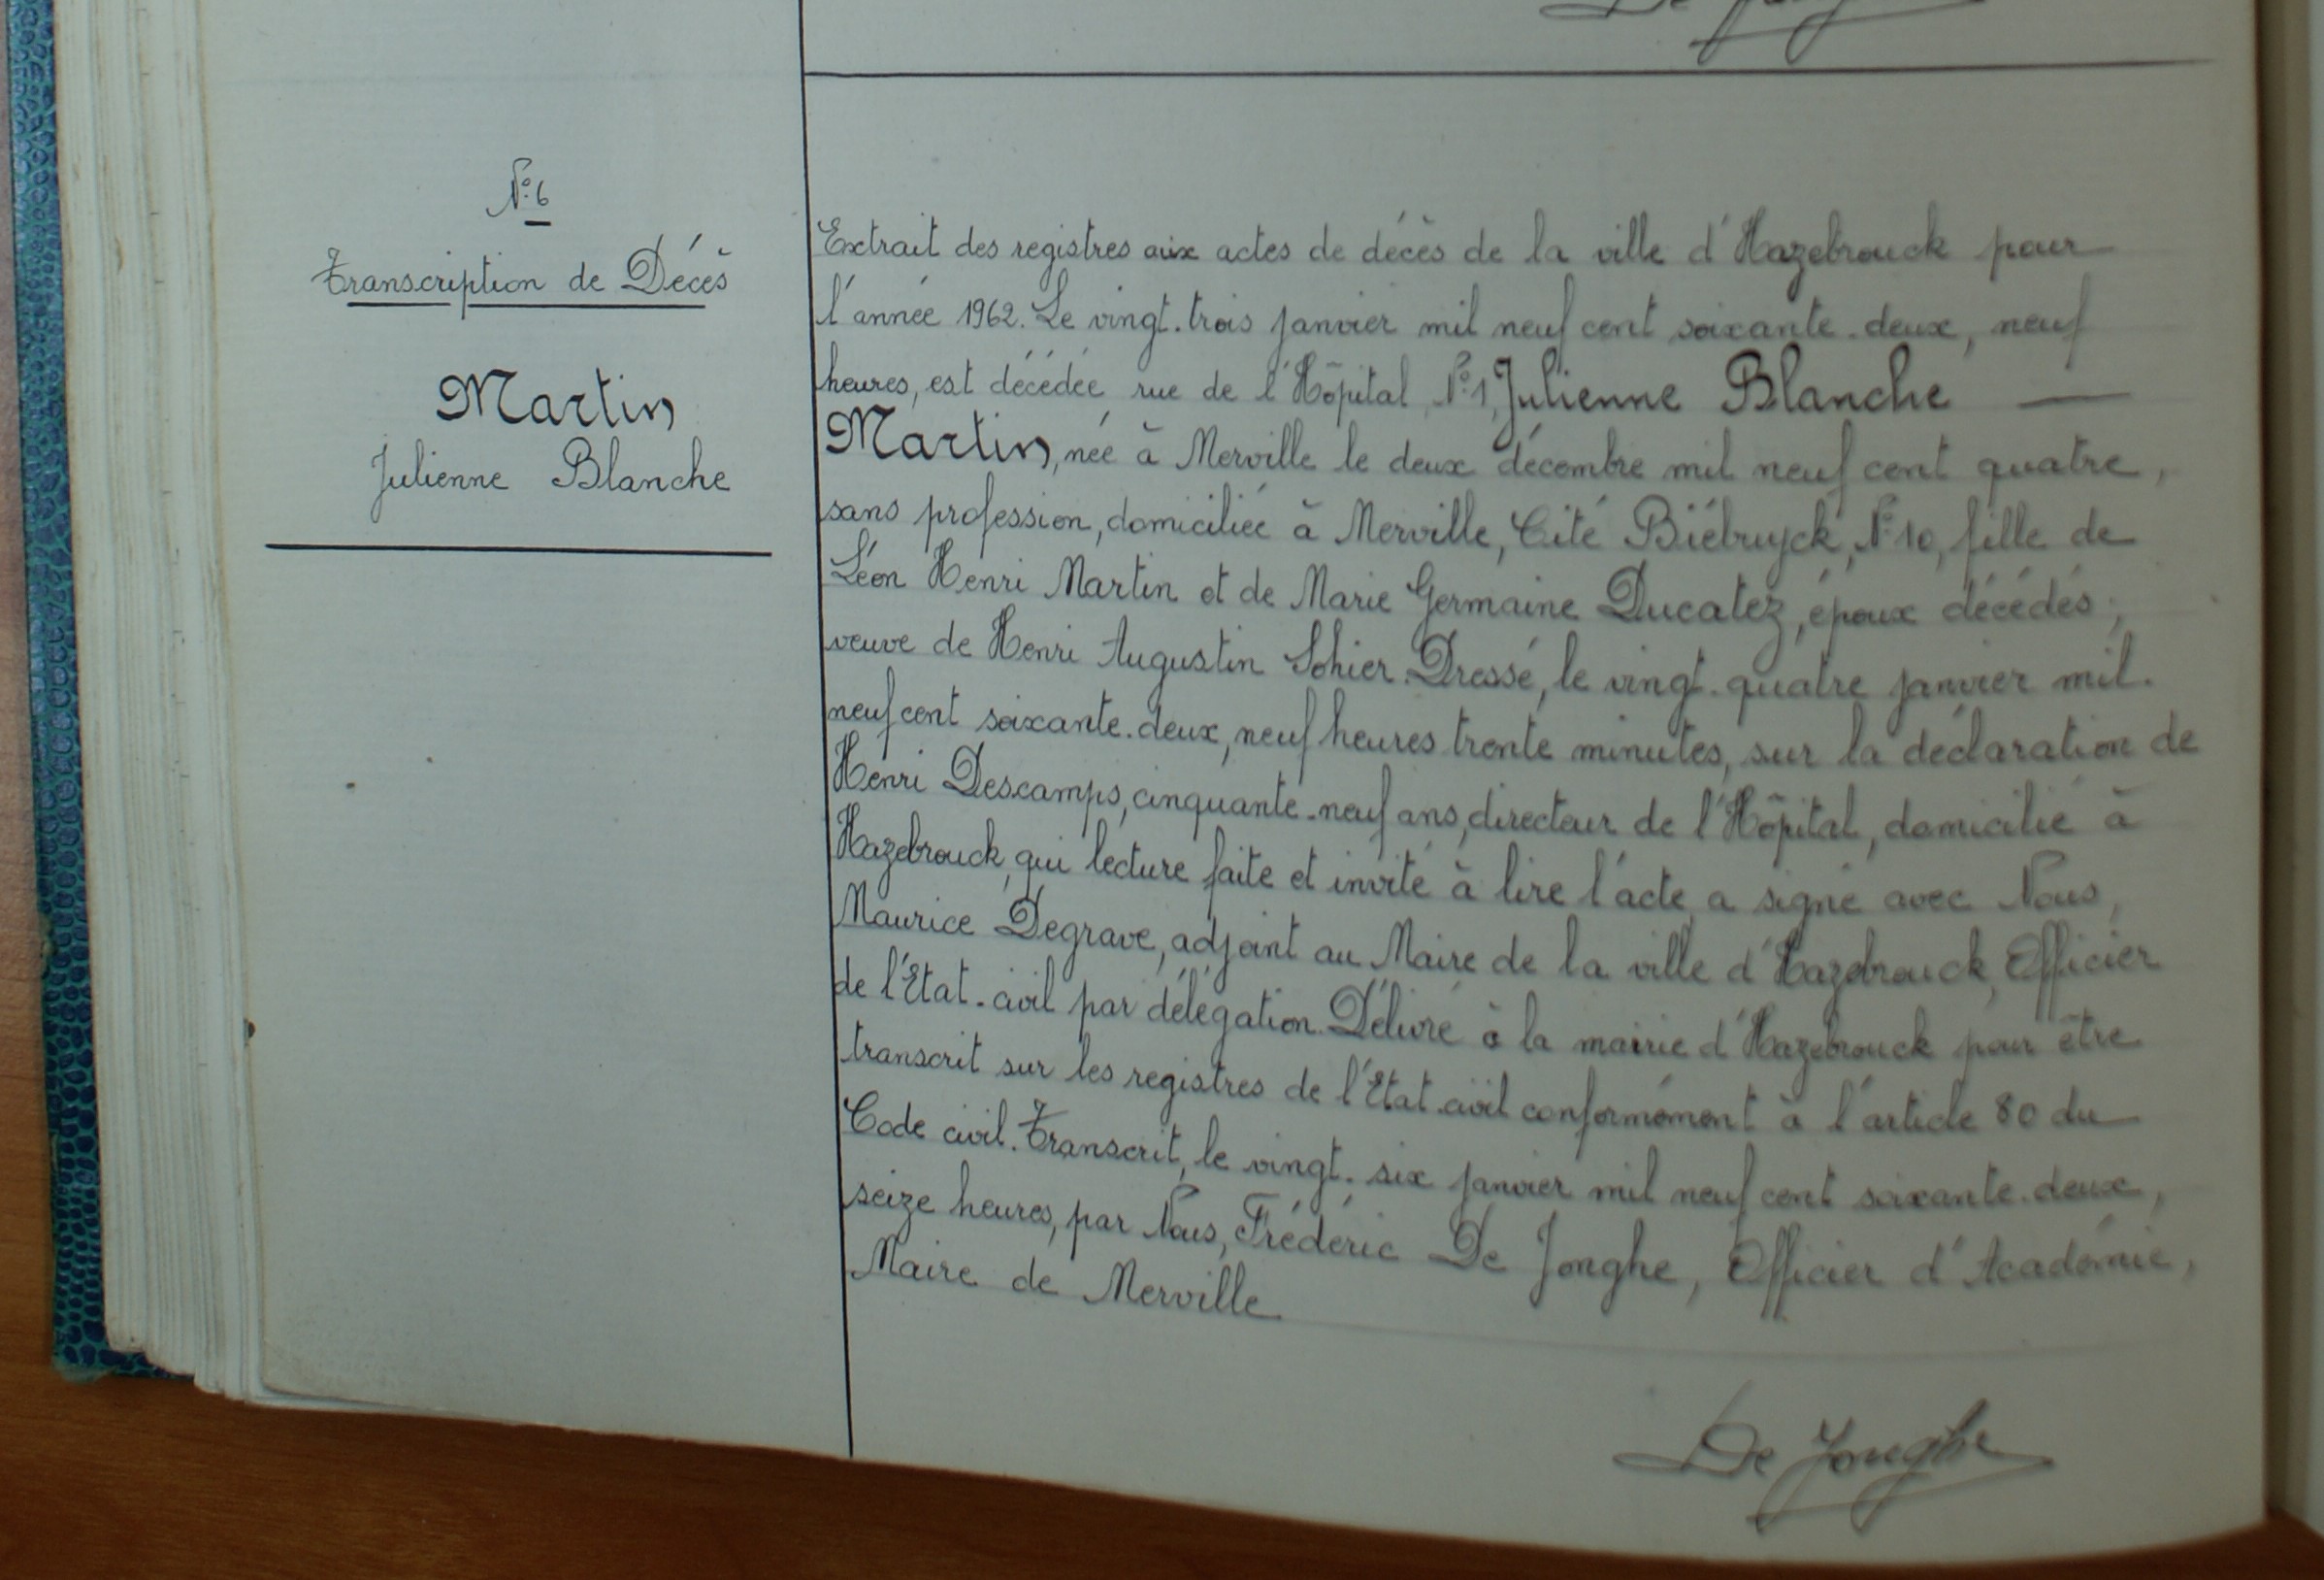 N° 6
Transcription de Décès
Martin
Julienne Blanche
Extrait des registres aux actes de décès de la ville d'Hazebrouck pour
l'année 1962. Le vingt-trois janvier mil neuf cent soixante-deux, neuf
heures, est décédée rue de l'Hôpital, N° 1, Julienne Blanche —
Martin, née à Merville le deux décembre mil neuf cent quatre,
sans profession, domiciliée à Merville, Cité Biébuyck, N° 10, fille de
Léon Henri Martin et de Marie Germaine Ducatez, époux décédés;
veuve de Henri Augustin Sohier. Dressé, le vingt-quatre janvier mil-
neuf cent soixante-deux, neuf heures trente minutes, sur la déclaration de
Henri Descamps, cinquante-neuf ans, directeur de l'Hôpital, domicilié à
Hazebrouck, qui lecture faite et invité à lire l'acte, a signé avec Nous,
Maurice Degrave, adjoint au Maire de la ville d'Hazebrouck, Officier
de l'Etat-civil par délégation. Délivré à la mairie d'Hazebrouck pour être
transcrit sur les registres de l'Etat-civil conformément à l'article 80 du
Code civil. Transcrit, le vingt-six janvier mil neuf cent soixante-deux,
seize heures, par Nous, Frédéric De Jonghe, Officier d'Académie,
Maire de Merville
De Jonghe